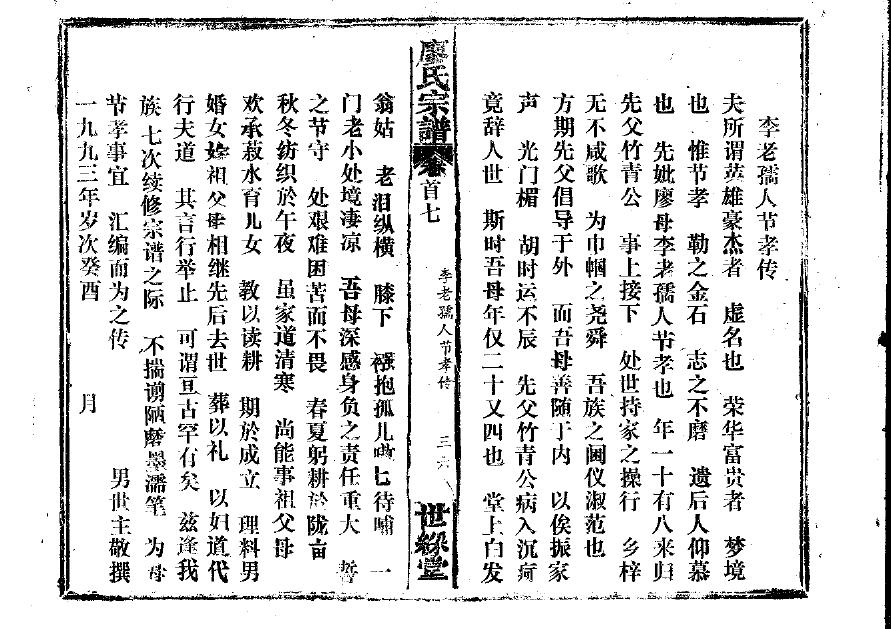 李老孺人节孝传
夫所谓英雄豪杰者 虚名也 荣华富贵者 梦境
也 惟节孝 勒之金石 志之不磨 遗后人仰慕
也 先妣廖母李老孺人节孝也 年一十有八来归
先父竹青公 事上接下 处世持家之操行 乡梓
无不咸歌 为巾帼之尧舜 吾族之阃仪淑范也
方期先父倡导于外 而吾母善随于内 以俟振家
声 光门楣 胡时运不辰 先父竹青公病入沉疴
竟辞人世 斯时吾母年仅二十又四也 堂上白发
廖氏宗譜
卷首七
李老孺人节孝传
三六
世綵堂
翁姑 老泪纵横 膝下 襁抱孤儿嗷七待哺 一
门老小处境凄凉 吾母深感身负之责任重大 誓
之节守 处艰难困苦而不畏 春夏躬耕於陇亩
秋冬纺织於午夜 虽家道清寒 尚能事祖父母
欢承菽水育儿女 教以读耕 期於成立 理料男
婚女嫁祖父母相继先后去世 葬以礼 以妇道代
行夫道 其言行举止 可谓亘古罕有矣 兹逢我
族七次续修宗谱之际 不揣谫陋磨墨濡笔 为母
节孝事宜 汇编而为之传 男世主敬撰
一九九三年岁次癸酉 月